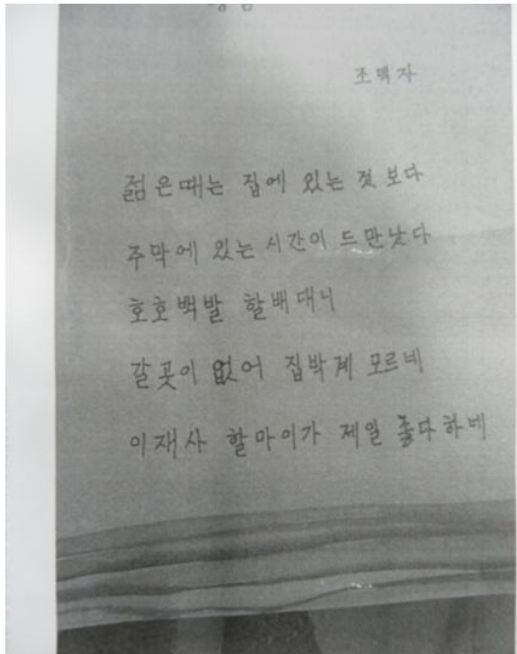 조맥자
젊은때는 집에 있는 겻보다
주막에 있는 시간이 드만낫다
호호백발 할배대니
갈곳이 없어 집박계 모르네
이재사 할마이가 제일 좋다하네